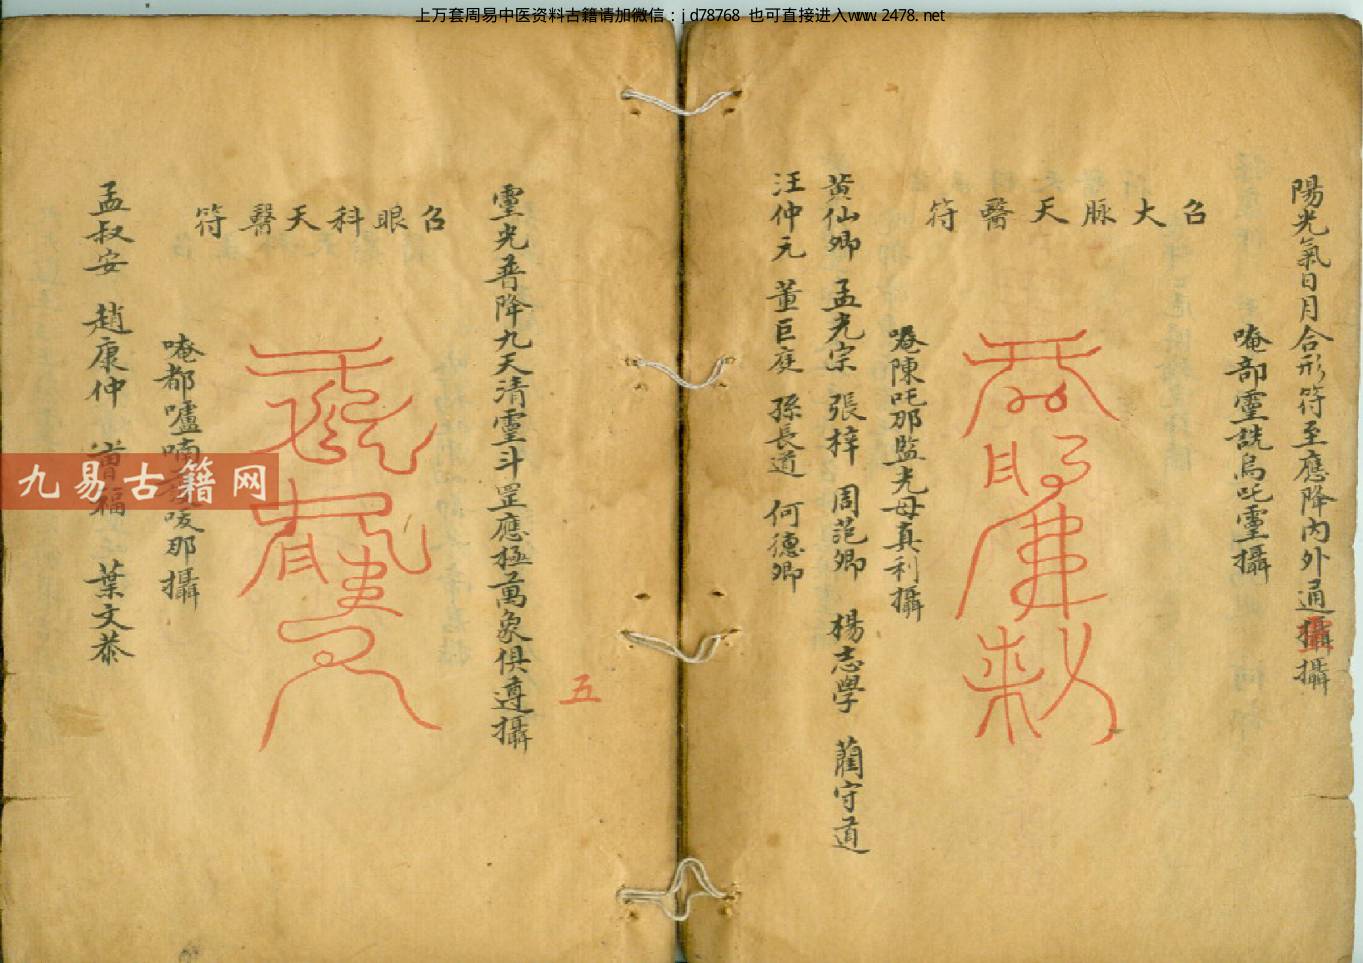 上万套周易中医资料古籍请加微信：jd78768 也可直接进入www.2478.net
陽光氣日月合形符至應降內外通攝攝
唵部靈說烏吒靈攝
召大脈天醫符
唵陳吒那監光母真利攝
黃仙卿 孟光宗 張梓 周范卿 楊志學 藺守道
汪仲元 董巨庭 孫長道 何德卿
五
靈光普降九天清靈斗罡應極萬象俱遵攝
召眼科天醫符
唵都嚧喃 唆那攝
孟叔安 趙康仲 曾福 葉文恭
九易古籍网